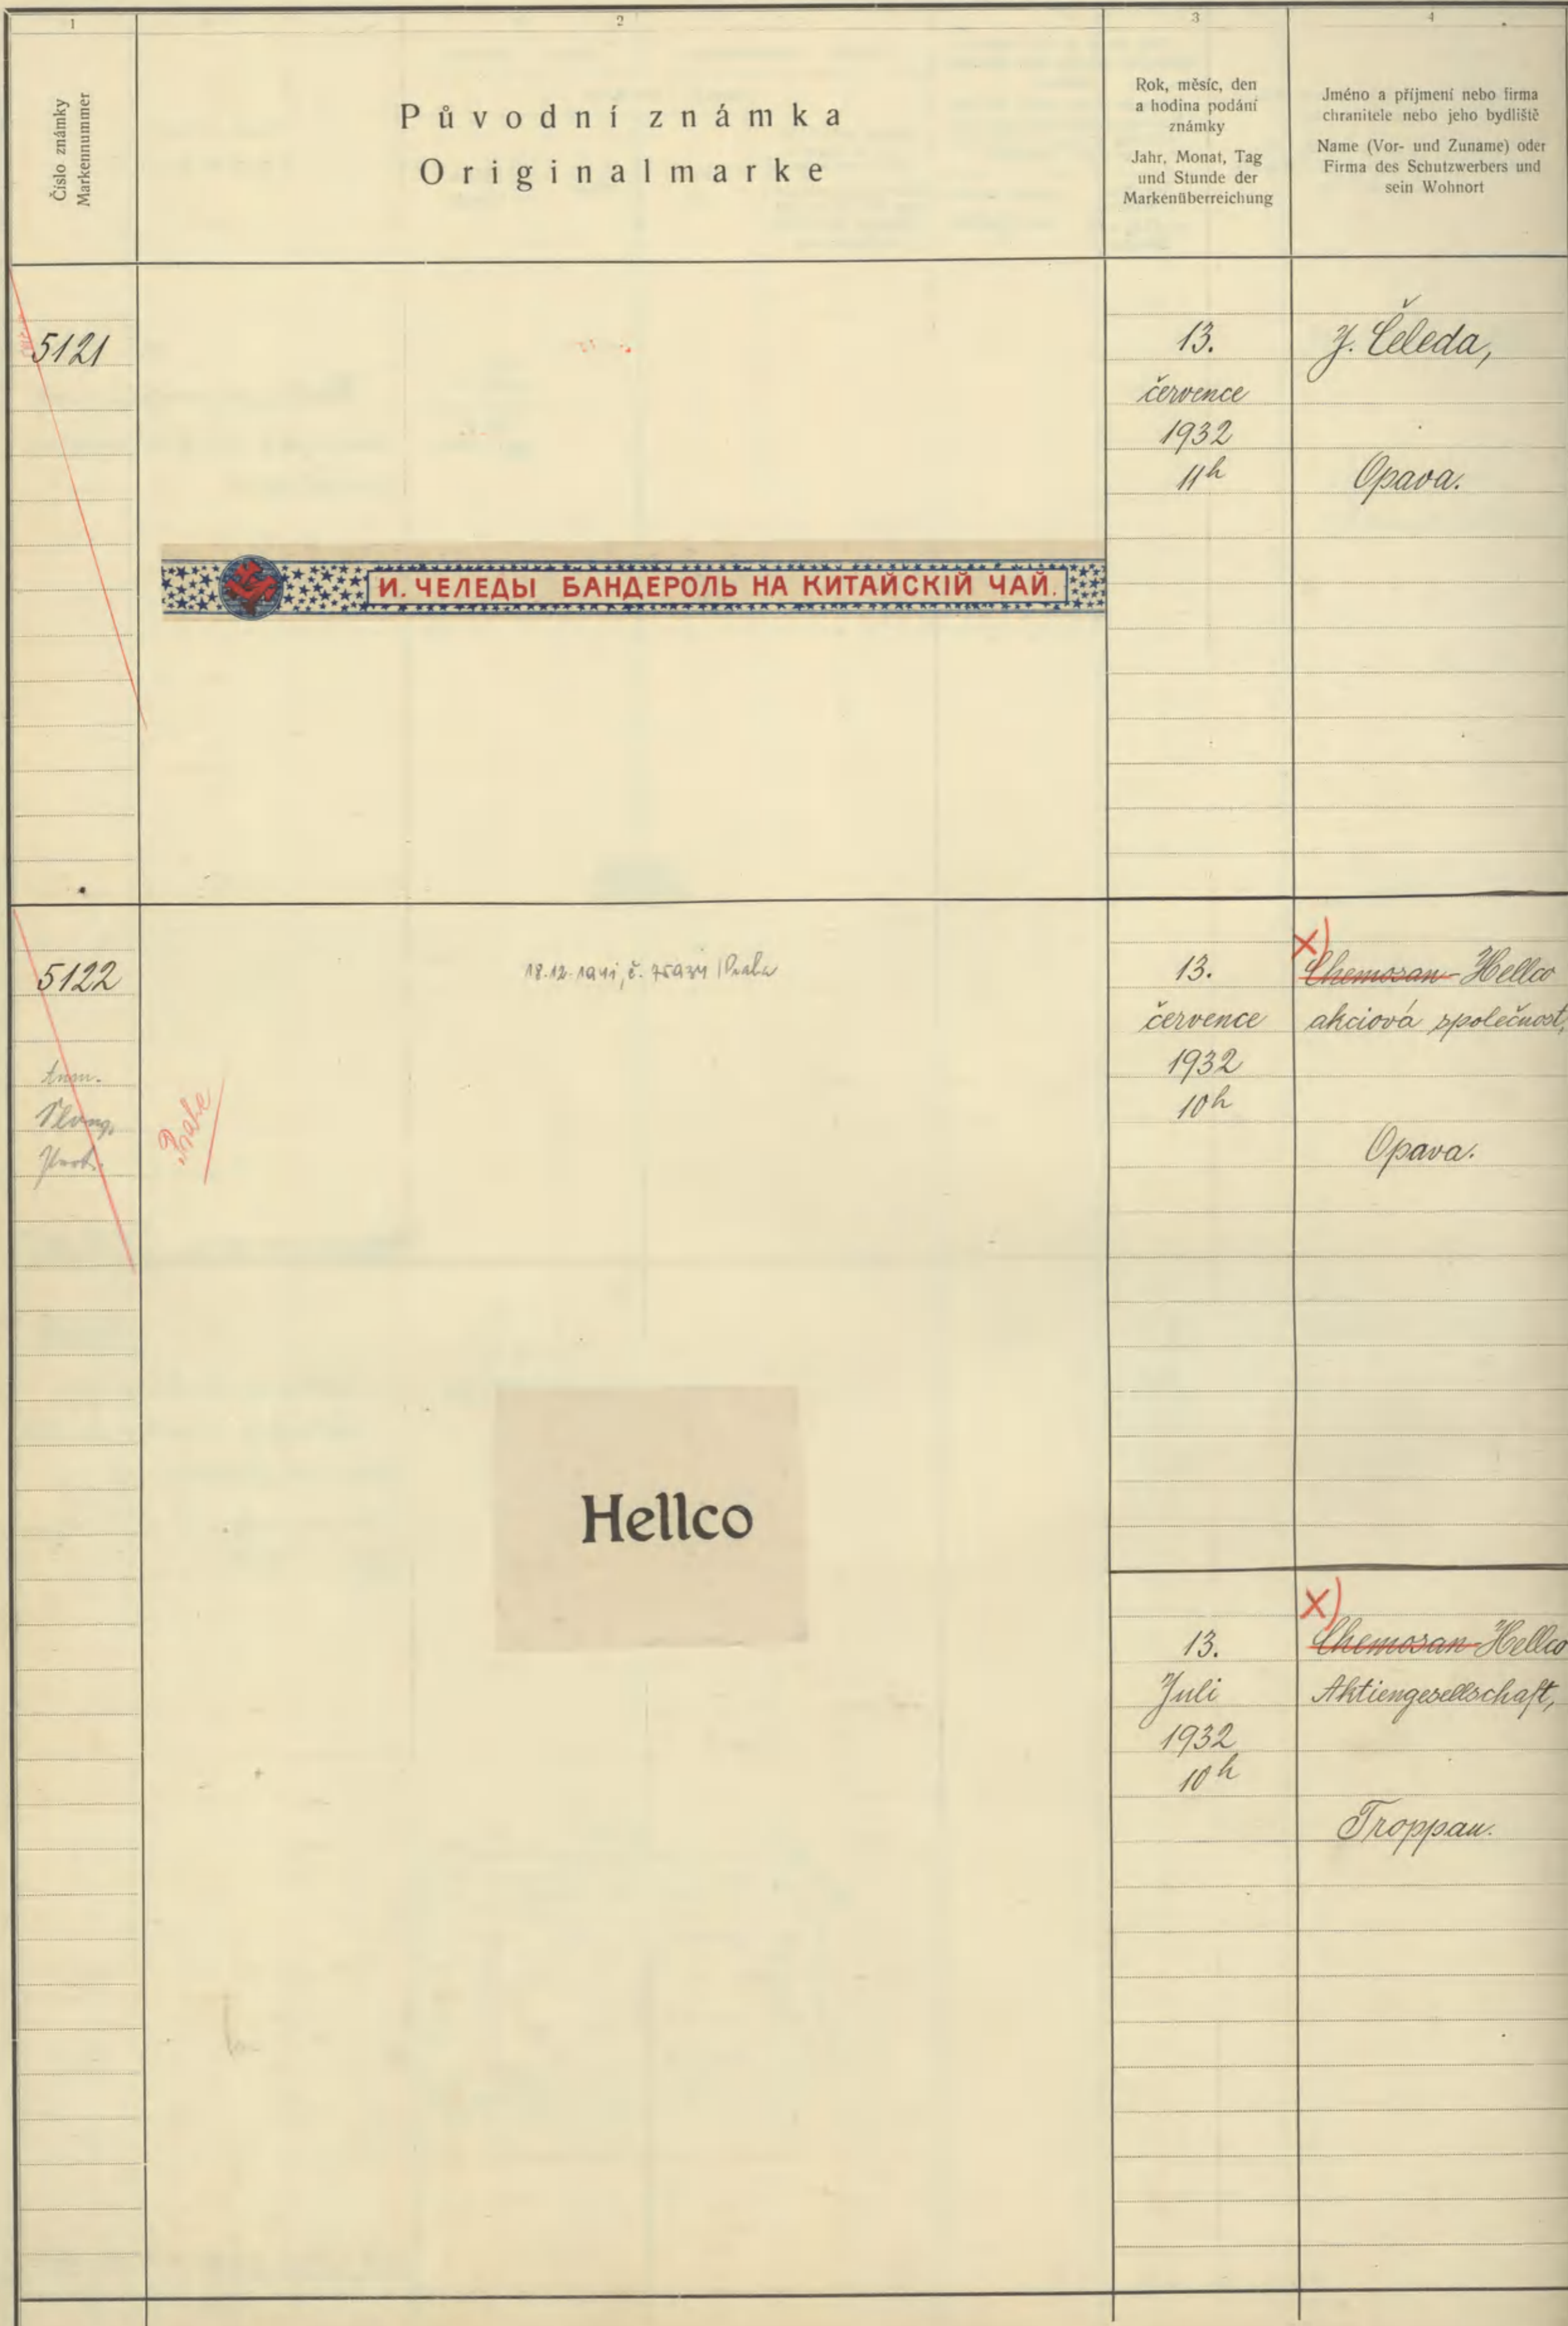 1
2
3
4
Číslo známky
Markennummer
Původní známka
Originalmarke
Rok, měsíc, den
a hodina podání
známky
Jahr, Monat, Tag
und Stunde der
Markenüberreichung
Jméno a příjmení nebo firma
chranitele nebo jeho bydliště
Name (Vor- und Zuname) oder
Firma des Schutzwerbers und
sein Wohnort
5121
13.
července
1932
11h
J. Čeleda,
Opava.
И. ЧЕЛЕДЫ БАНДЕРОЛЬ НА КИТАЙСКІЙ ЧАЙ.
5122
18.12.1941, č. 75934 Praha
13.
července
1932
10h
X)
Chemosan-Hellco
akciová společnost,
Opava.
Hellco
13.
Juli
1932
10h
X)
Chemosan-Hellco
Aktiengesellschaft,
Troppau.